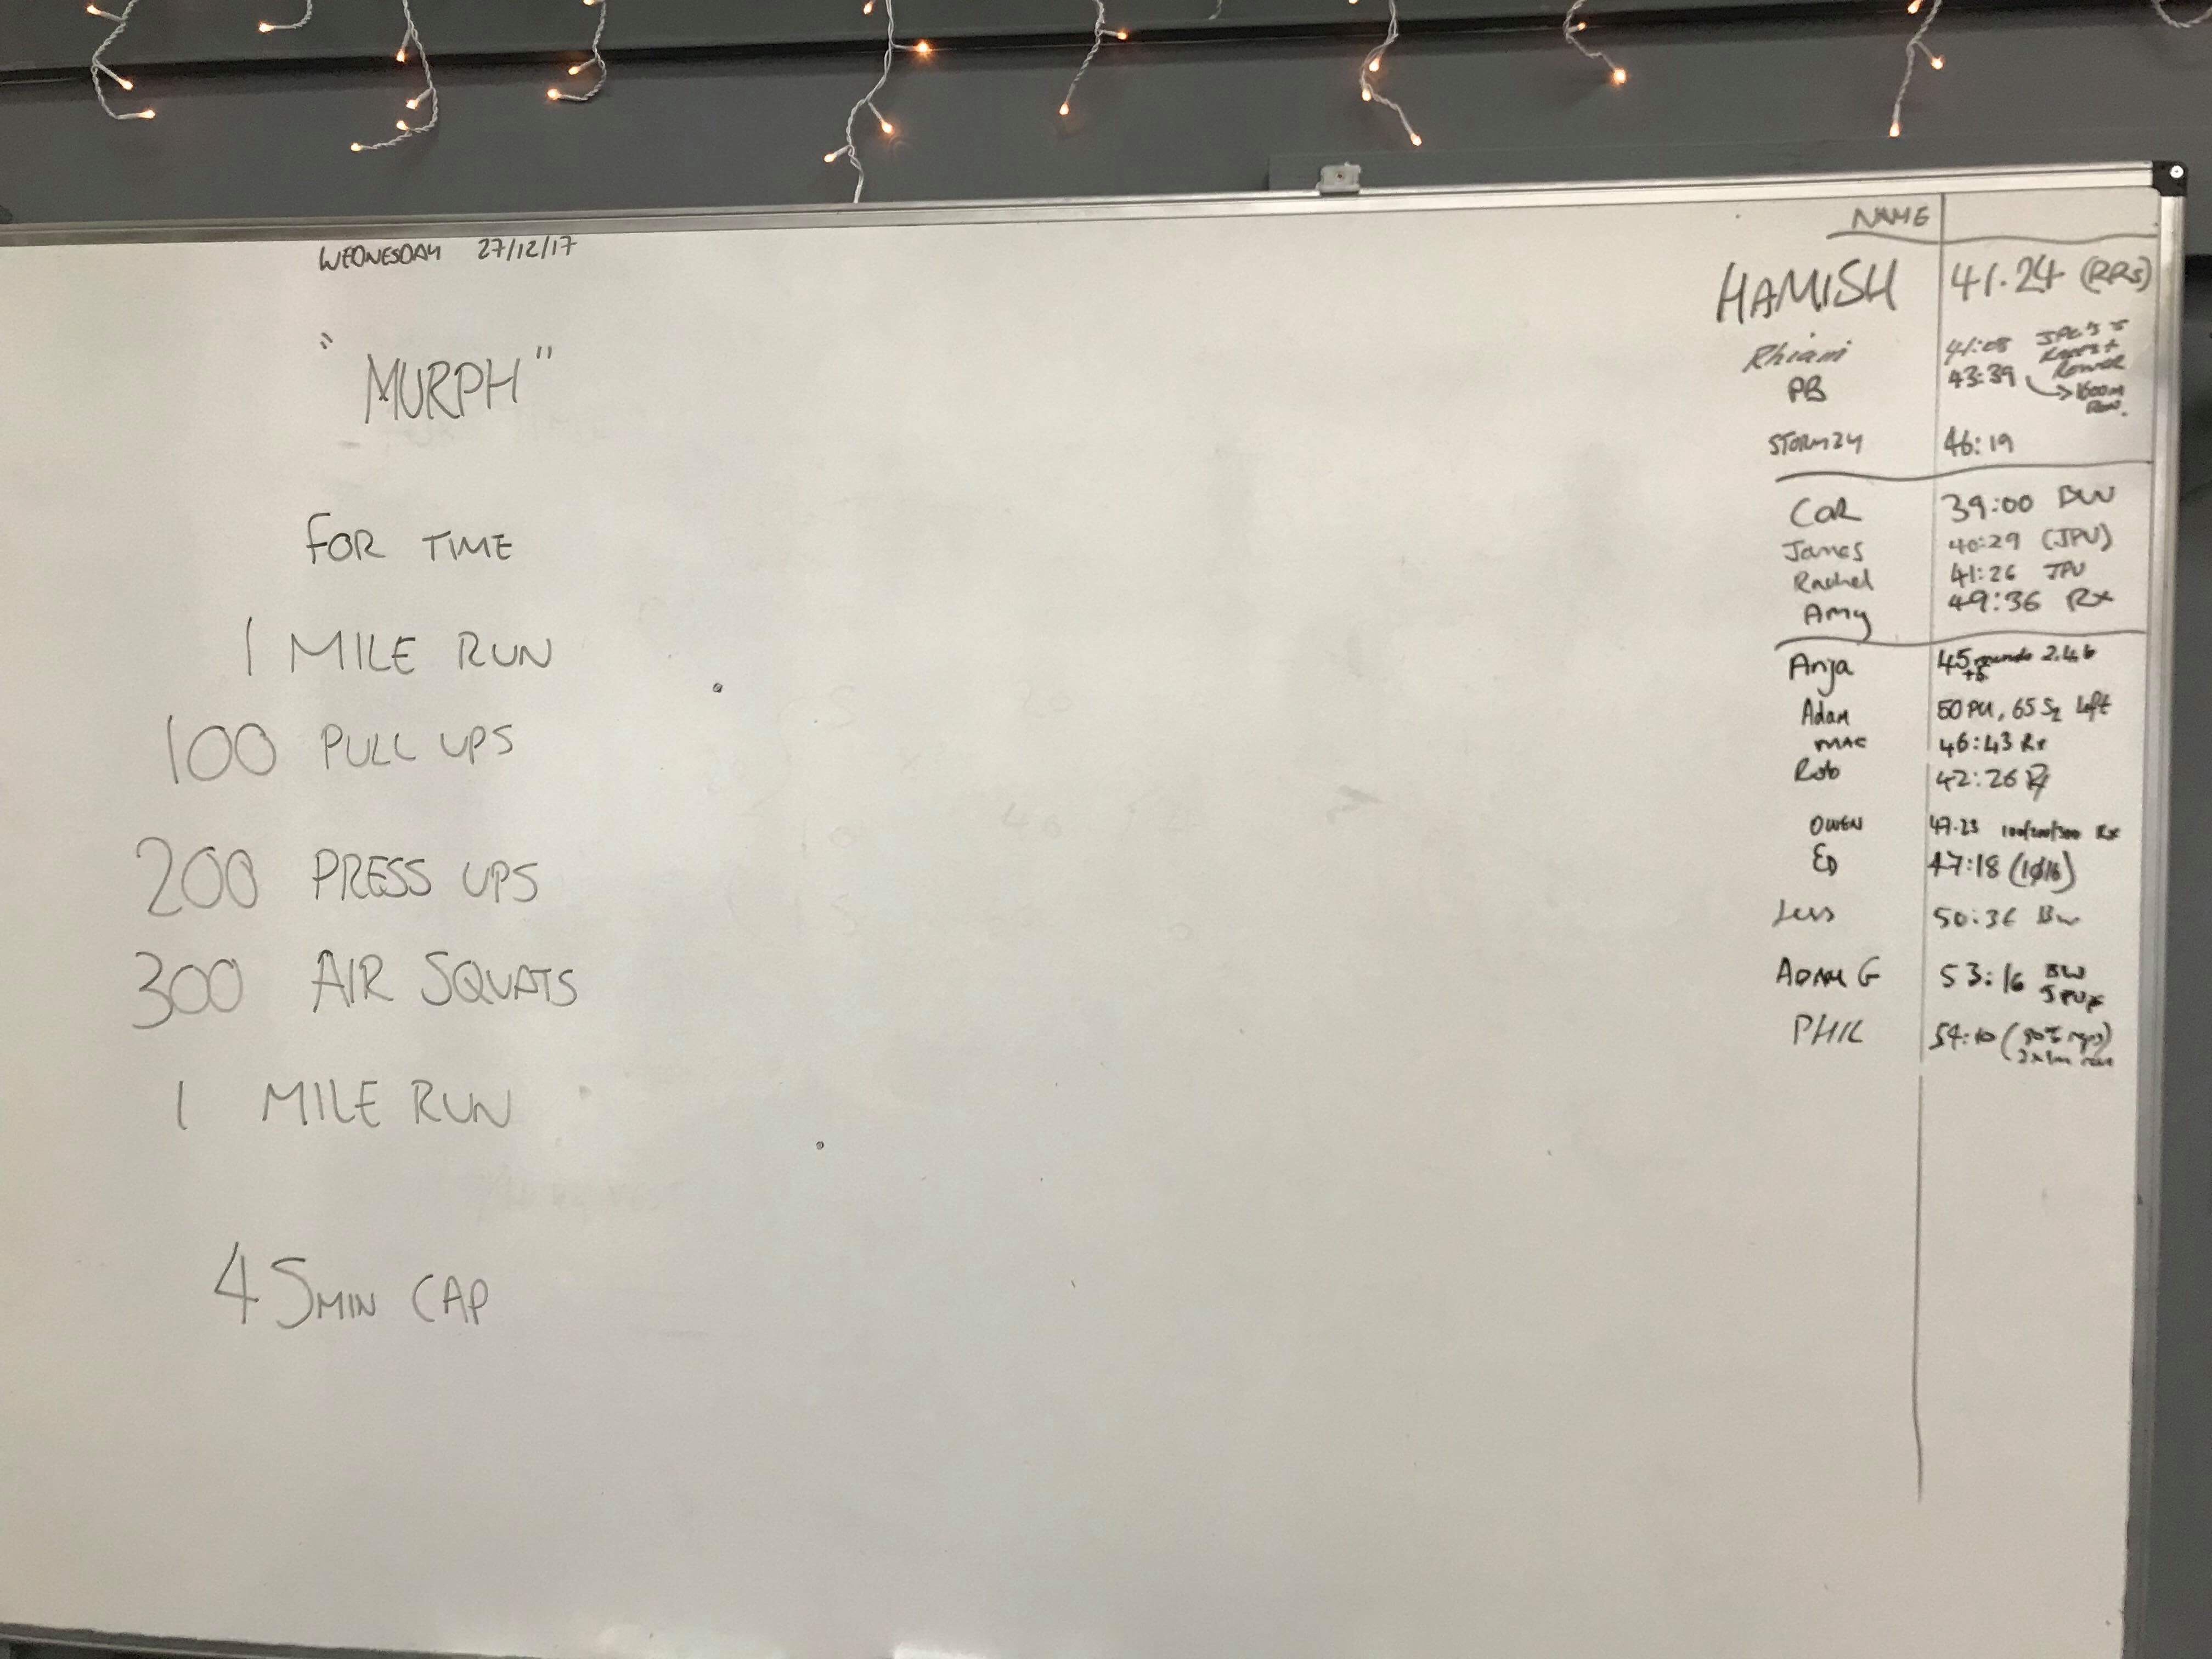 WEDNESDAY 27/12/17
"MURPH"
FOR TIME
1 MILE RUN
100 PULL UPS
200 PRESS UPS
300 AIR SQUATS
1 MILE RUN
45MIN CAP
NAME
HAMISH 41.24 (RRS)
Rhian 41:08
PB 43:39 → 1600m Row.
STORMZY 46:19
CAR 39:00 BW
James 40:29 (JPU)
Rachel 41:26 JPU
Amy 49:36 Rx
Anja 45 rounds 2.4.6
Adam 50 PU, 65 Sq left
MAC 46:43 Rx
Rob 42:26 Rx
OWEN 47.23 100/200/300 Rx
ED 47:18
50:36 BW
ADAM G 53:16 BW
PHIL 54:10 (90% reps)
2x1m run